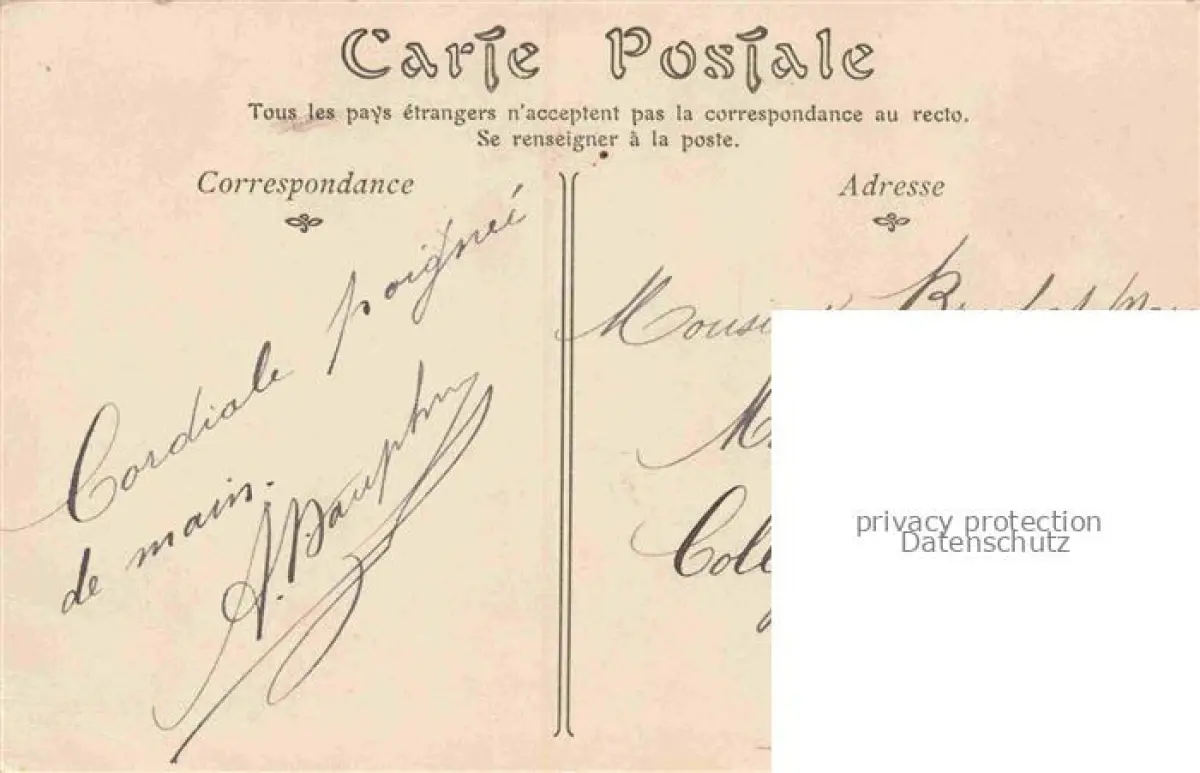 Carte Postale
Tous les pays étrangers n'acceptent pas la correspondance au recto.
Se renseigner à la poste.
Correspondance
Cordiale poignée
de main.
Adresse
privacy protection
Datenschutz